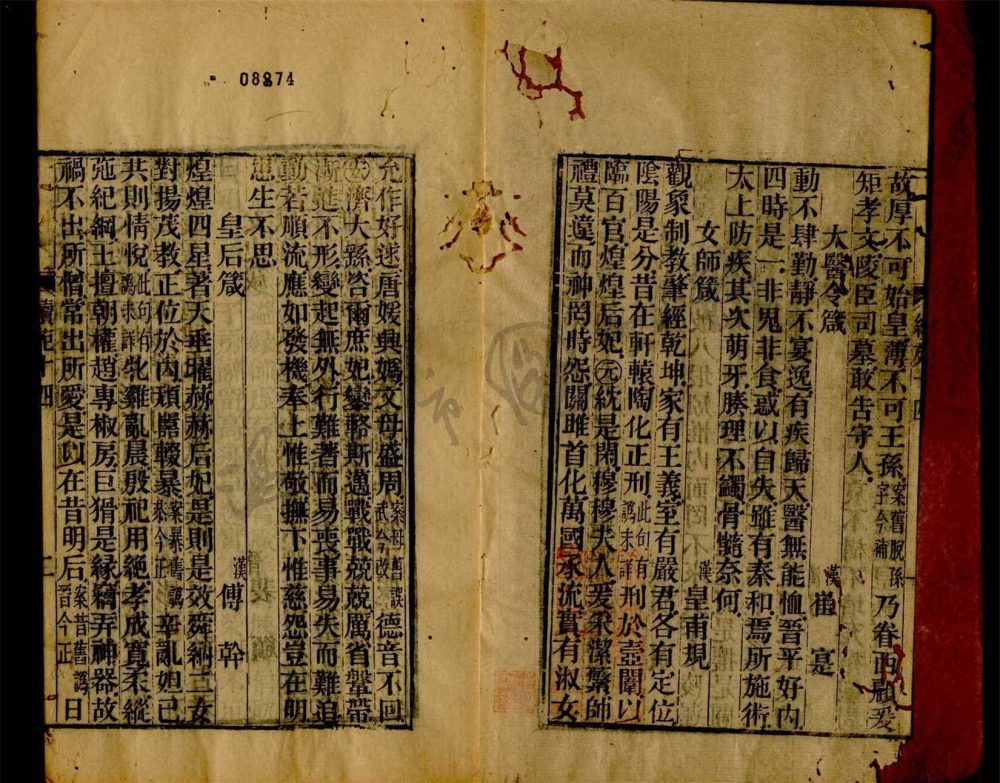 08874
故厚不可始皇薄不可王孫案舊脫孫字今補乃眷西顧爰
矩孝文陵臣司墓敢告守人
太醫令箴 漢崔寔
動不肆勤靜不宴逸有疾歸天醫無能恤晉平好內
四時是一非鬼非食惑以自失雖有秦和焉所施術
太上防疾其次萌牙腠理不蠲骨髓奈何
女師箴 漢皇甫規
觀象制教肇經乾坤家有王義室有嚴君各有定位
陰陽是分昔在軒轅陶化正刑此句有譌未詳刑於壼闈以
臨百官煌煌后妃元統是閑穆穆夫人爰采潔蘩師
禮莫違而神罔時怨關雎首化萬國承流實有淑女
允作好逑唐媛興媯文母盛周案母舊誤武今改德音不回
弈濟大繇咨爾庶妃鑾輅斯邁戰戰兢兢厲省鞶帶
漸進不形變起無外行難著而易喪事易失而難追
動若順流應如發機奉上惟敬撫下惟慈怨豈在明
患生不思
皇后箴 漢傅幹
煌煌四星著天垂曜赫赫后妃是則是效舜納二女
對揚茂教正位於內頑嚚輟暴案暴舊譌恭今正辛亂妲己
共則情悅此句有譌未詳牝雞亂晨殷祀用絶孝成寛柔縱
弛紀綱王擅朝權趙專椒房巨猾是緣竊弄神器故
禍不出所憎常出所愛是以在昔明后案昔舊譌晉今正日